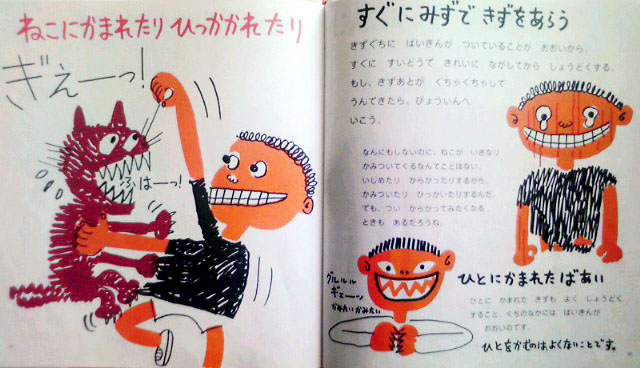 ねこにかまれたり ひっかかれたり
ぎえーっ!
ふはーっ!
すぐにみずで きずをあらう
きずぐちに ばいきんが ついていることが おおいから、
すぐに すいどうで きれいに ながしてから しょうどくする。
もし、きずあとが ぐちゃぐちゃして
うんできたら、びょういんへ
いこう。
なんにもしないのに、ねこが いきなり
かみついてくるなんてことはない。
いじめたり からかったりするから、
かみついたり ひっかいたりするんだ。
でも、つい からかってみたくなる
ときも あるだろうね。
グルルル
ギェーッ
かみたいかみたい
ひとにかまれたばあい
ひとに かまれた きずも よく しょうどく
すること。くちのなかには ばいきんが
おおいのです。
ひとをかむのは、よくないことです。